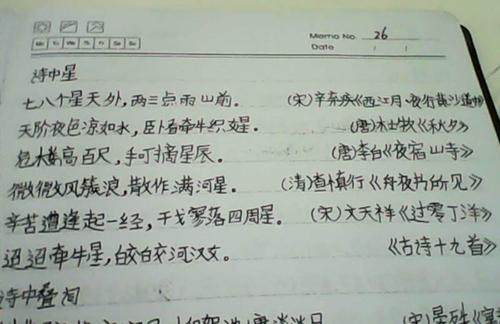 Memo No. 26
Date / /
Mo Tu We Th Fr Sa Su
诗中星
七八个星天外，两三点雨山前。 (宋)辛弃疾《西江月·夜行黄沙道中》
天阶夜色凉如水，卧看牵牛织女星。 (唐)杜牧《秋夕》
危楼高百尺，手可摘星辰。 (唐)李白《夜宿山寺》
微微风簇浪，散作满河星。 (清)查慎行《舟夜书所见》
辛苦遭逢起一经，干戈寥落四周星。 (宋)文天祥《过零丁洋》
迢迢牵牛星，皎皎河汉女。 《古诗十九首》
诗中叠词